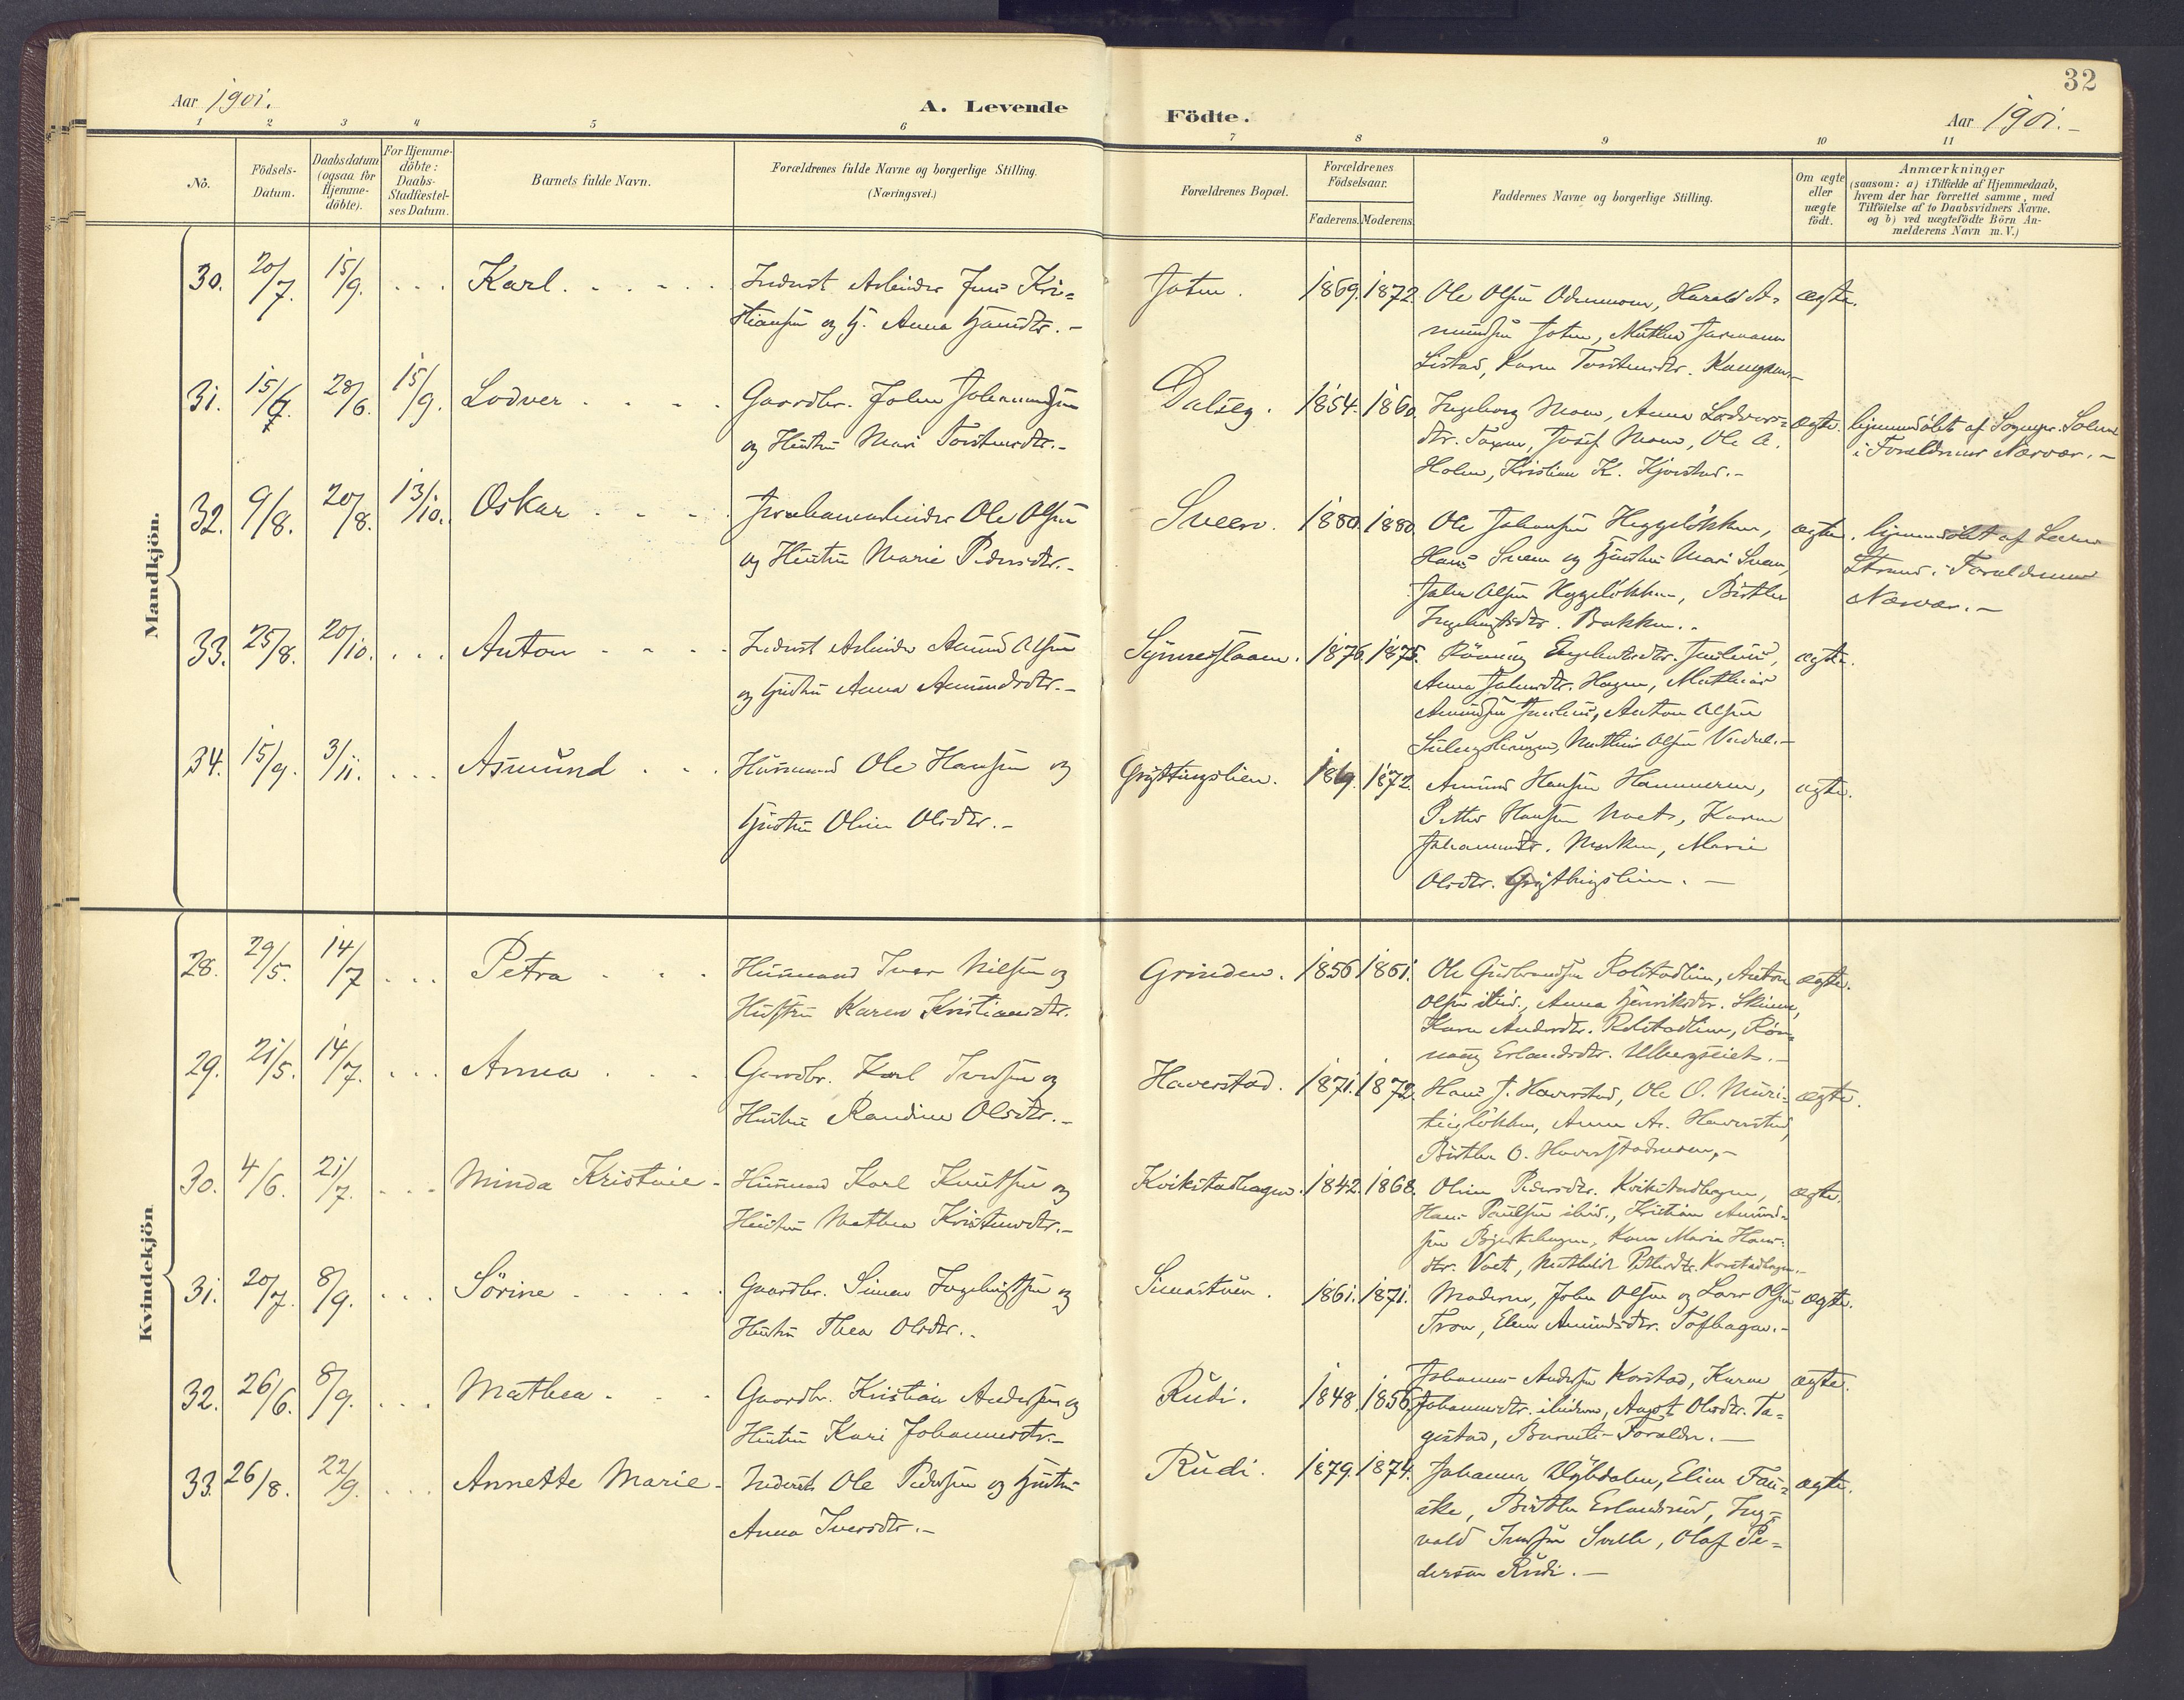 32
Aar 1901.
A. Levende
Födte.
Aar 1901.-
1 2 3 4 5 6 7 8 9 10 11
No.
Födsels-
Datum.
Daabsdatum
(ogsaa for
Hjemme-
döbte).
For Hjemme-
döbte:
Daabs-
Stadfæstel-
ses Datum.
Barnets fulde Navn.
Forældrenes fulde Navne og borgerlige Stilling.
(Næringsvei.)
Forældrenes Bopæl.
Forældrenes
Födselsaar.
Faderens. Moderens.
Faddernes Navne og borgerlige Stilling.
Om ægte
eller
uægte
födt.
Anmærkninger
(saasom: a) i Tilfælde af Hjemmedaab,
hvem der har forrettet samme, med
Tilföielse af to Daabsvidners Navne.
og b) ved uægtefödte Börn An-
melderens Navn m.V.)
Mandkjön.
30. 20/7. 15/9. . . . Karl. . . . . .
Indust Arbeider Jens Kri=
stiansen og H. Anna Hansdtr. -
1869. 1872. Ole Olsen Odnmoen, Harald A=
mundsen Mathea
Listad, Karen Torstensdtr.
ægte.
31. 15/6. 28/6. 15/9. Lodver . . . .
Gaardbr. Johan Johannesen
og Hustru Mari Torstensdtr.-
Dalseg. 1854. 1860. Ingeborg Moen, Anna Lodvers=
dtr. Josef Moen, Ole A.
Holen, Kristian K. Kjorstad.-
ægte. hjemmedöbt af Sognepr.
i Forældrenes Nærvær.-
32. 9/8. 20/8. 13/10. Oskar . . . .
Ole Olsen
og Hustru Marie Pedersdtr.-
Sveen. 1880. 1880. Ole Johansen Heggelökken,
Hans Sveen og Hustru Mari Sveen,
Johan Olsen Heggelökken, Birthe
Bakken..
ægte. hjemmedöbt af
i Forældrenes
Nærvær.-
33. 25/8. 20/10. . . . Anton . . . .
Indust Arbeider Amund Olsen
og Hustru Anna Amundsdtr.-
1876. 1875. Rönnaug Engebretsdtr.
Anna Johnsdtr. Hagen, Mathias
Amundsen Anton Olsen
Mathias Olsen
ægte.
34. 15/9. 3/11. . . . Asmund . . .
Husmand Ole Hansen og
Hustru Oline Olsdtr.-
Gryttingslien. 1872. Amund Hansen Hammeren,
Petter Hansen Karen
Johannesdtr. Marie
Olsdtr. Gryttingslien. -
ægte.
Kvindekjön
28. 29/5. 14/7 . . . Petra . . .
Husmand Iver Nilsen og
Hustru Karen Kristiansdtr.
Grinden. 1856 1861. Ole Gudbrandsen Rolstadlien, Anton
Olsen ibid., Anna Henriksdtr.
Karen Andersdtr. Rolstadlien, Rön=
naug Erlandsdtr. Ulbergseiet.-
ægte.
29. 21/5. 14/7. . . . Anna . . .
Gaardbr. Karl Iversen og
Hustru Randine Olsdtr.-
Haverstad. 1871. 1872. Hans J. Haverstad, Ole O.
Anne A. Haverstad,
Birthe O. Haverstadmoen,-
ægte.
30. 4/6. 21/7. . . . Minda Kristine -
Husmand Karl Knutsen og
Hustru Mathea Kristensdtr.-
Kvikstadhagen. 1842. 1868. Oline Pedersdtr. Kvikstadhagen,
Hans Paulsen ibid., Kristian Amund=
sen Karen Marie Hans=
dtr.
ægte.
31. 20/7. 8/9. . . . Sörine . . . . .
Gaardbr. Simen Ingebrigtsen og
Hustru Thea Olsdtr..
Simastuen. 1861. 1871. Moderen, John Olsen og Lars Olsen
Tron, Elen Amundsdtr. Tofthagen.-
ægte.
32. 26/6. 8/9. . . . Mathea . . .
Gaardbr. Kristian Andersen og
Hustru Kari Johannesdtr.-
Rudi. 1848. 1856. Johannes Andersen Korstad, Karen
Johannesdtr. ibidem, Olsdtr. Ta=
gestad, Barnets Forældre. -
ægte.
33. 26/8. 22/9. . . . Annette Marie -
Inderst Ole Pedersen og Hustru
Anna Iversdtr.-
Rudi. 1879. 1874. Johanna Eline Fau=
ske, Birthe Erlandsrud, Ing=
vald Olaf Pe=
dersen Rudi. -
ægte.